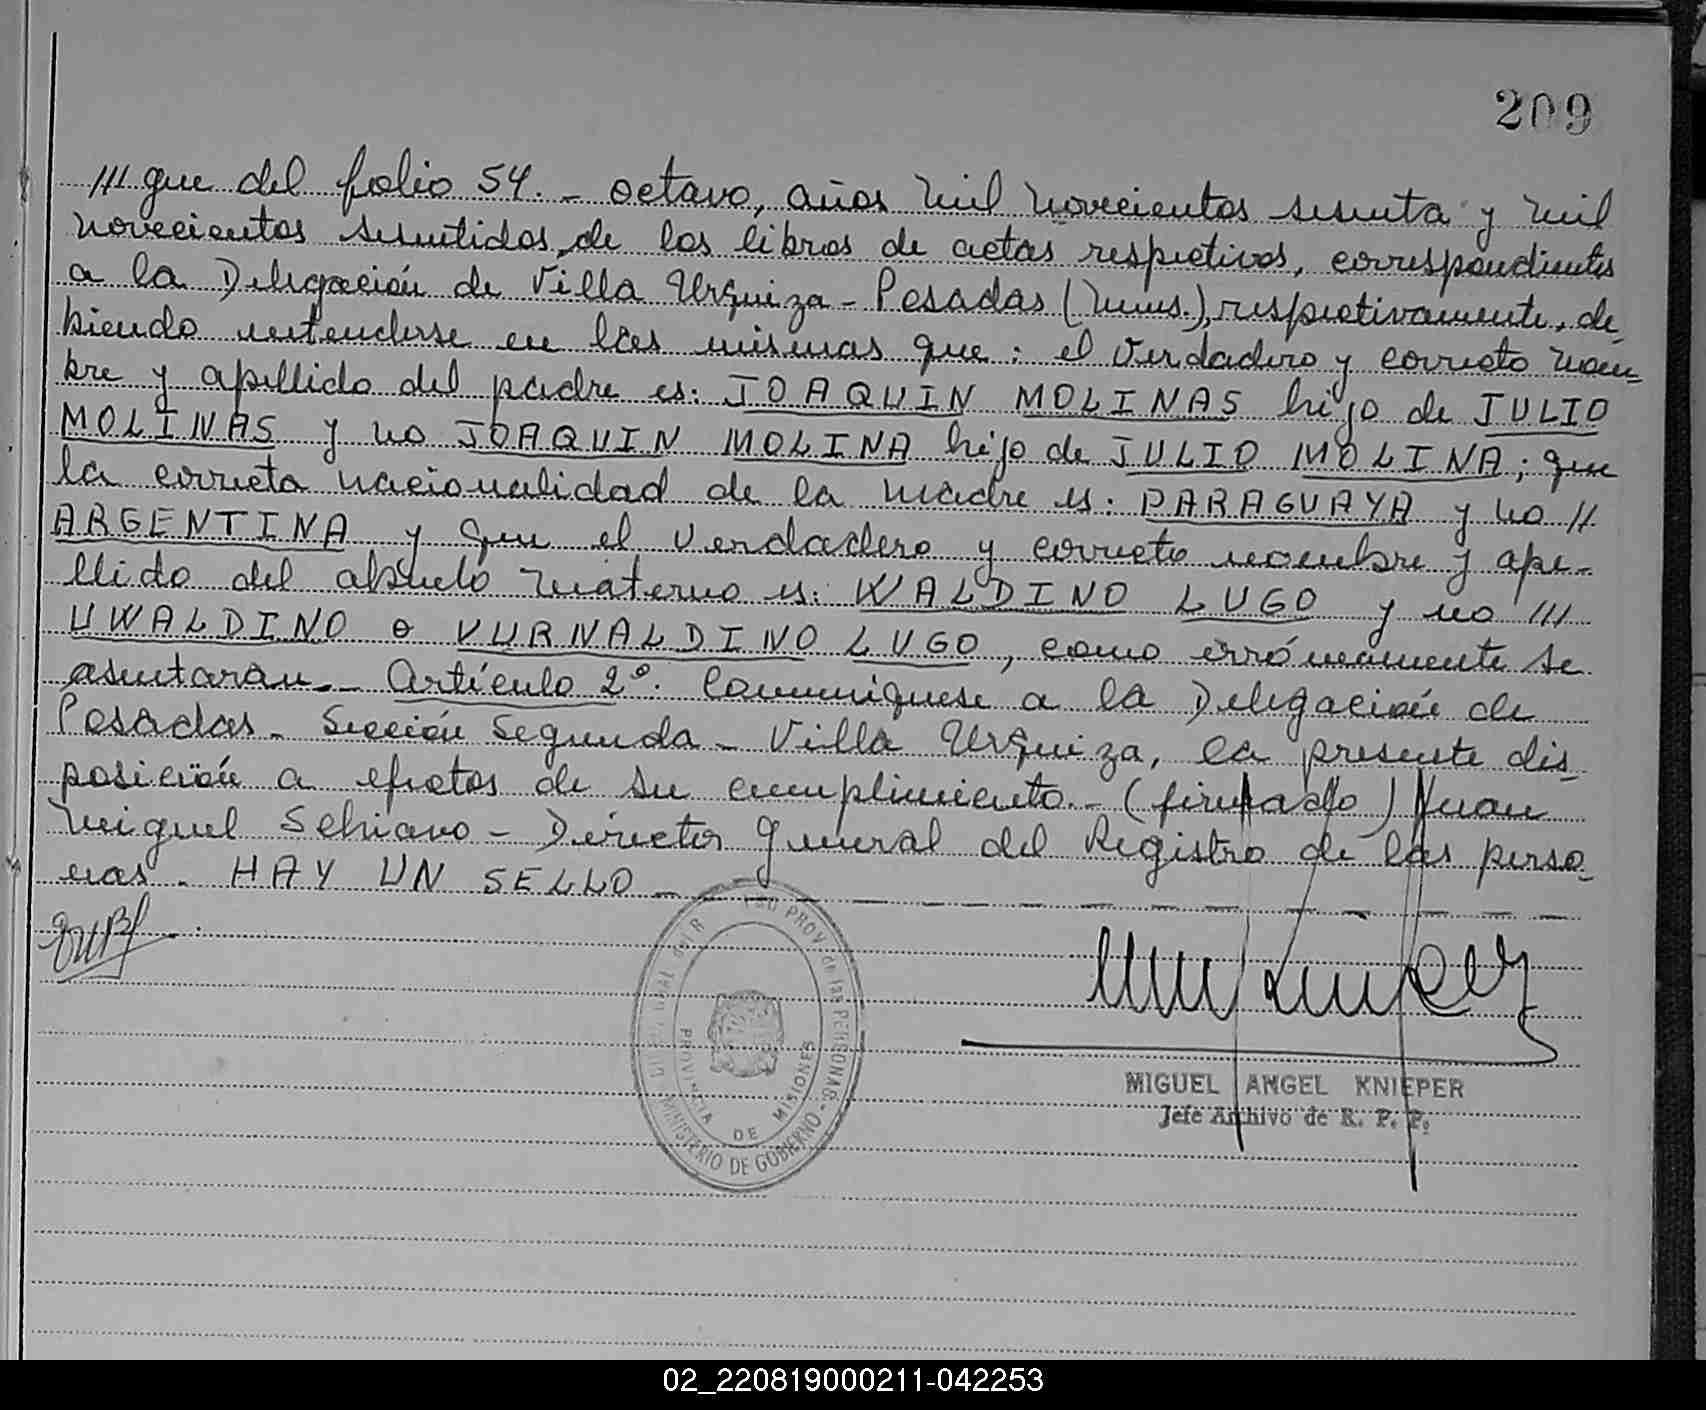 209
/// que del folio 54. - octavo, años mil novecientos sesenta y mil
novecientos sesentidos, de los libros de actas respetivos, correspondientes
a la Delegación de Villa Urquiza - Posadas (Mnes.), respetivamente, de
biendo entenderse en las mismas que: el verdadero y correcto nom-
bre y apellido del padre es: JOAQUIN MOLINAS hijo de JULIO
MOLINAS y no JOAQUIN MOLINA hijo de JULIO MOLINA; que
la correcta nacionalidad de la madre es: PARAGUAYA y no //
ARGENTINA y que el verdadero y correcto nombre y ape-
llido del abuelo materno es: WALDINO LUGO y no ///
UWALDINO o VURNALDINO LUGO, como erróneamente se
asentaran.- Artículo 2º. Comuniquese a la Delegación de
Posadas - Sección Segunda - Villa Urquiza, la presente dis-
posición a efetos de su cumplimiento.- (firmado) Juan
Miguel Schiavo - Director General del Registro de las perso-
nas. HAY UN SELLO -
PROV de las PERSONAS -
MINISTERIO DE GOBIERNO
PROVINCIA DE MISIONES
MIGUEL ANGEL KNIEPER
Jefe Archivo de R. P. P.
02_220819000211-042253